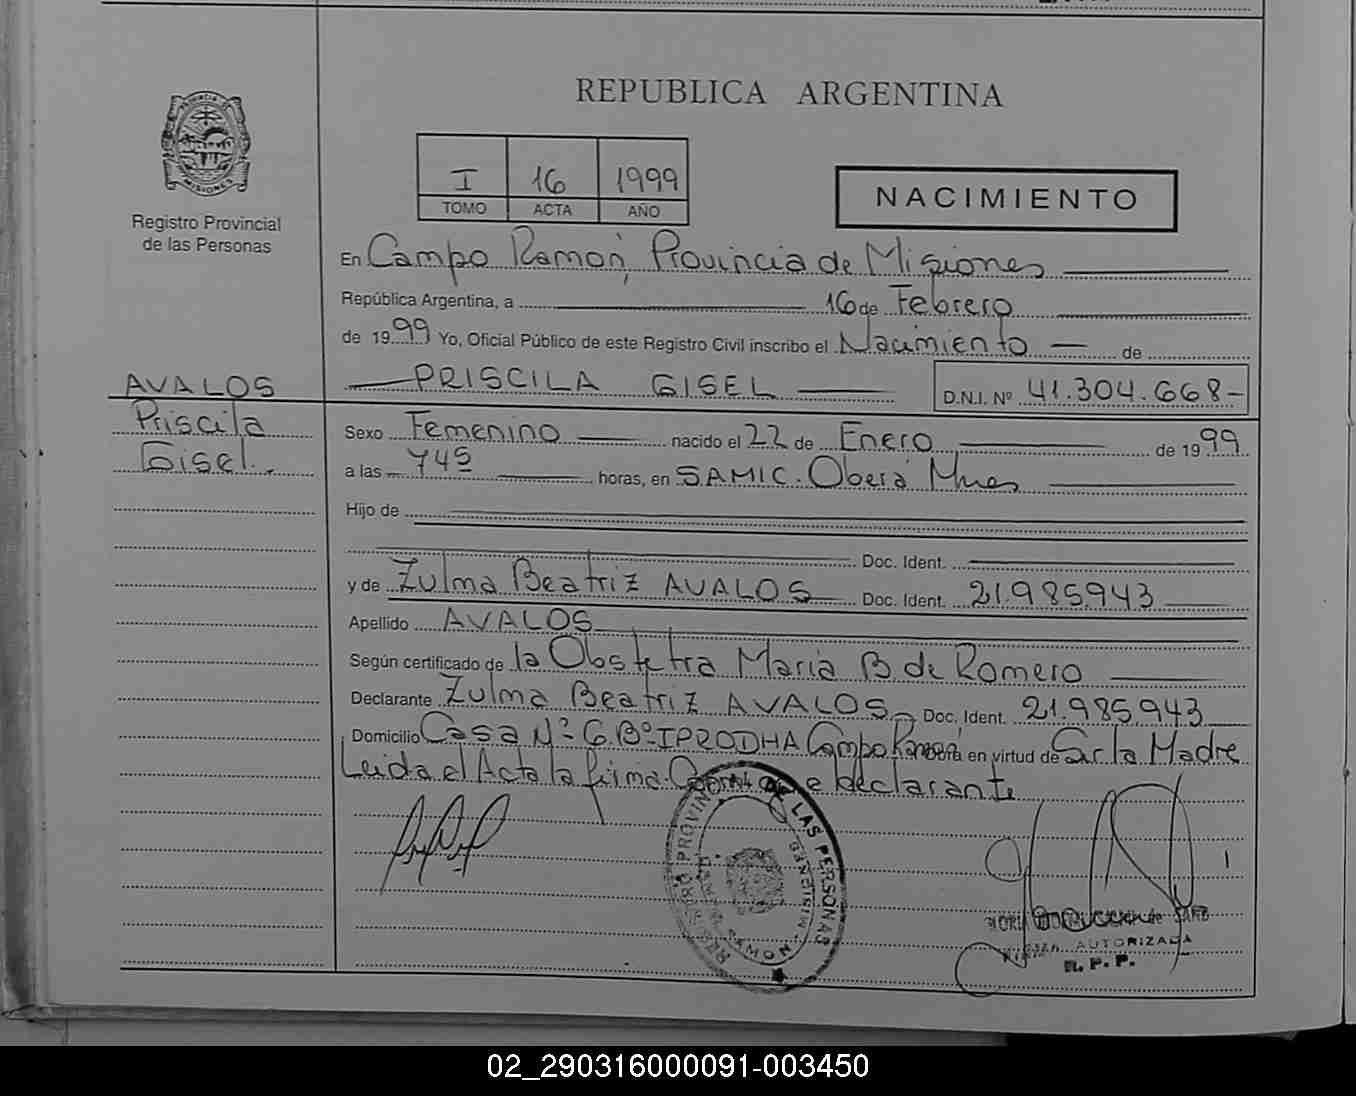 REPUBLICA ARGENTINA
PROVINCIA DE
MISIONES
Registro Provincial
de las Personas
I 16 1999
TOMO ACTA AÑO
NACIMIENTO
En Campo Ramón, Provincia de Misiones
República Argentina, a 16 de Febrero
de 1999 Yo, Oficial Público de este Registro Civil inscribo el Nacimiento de
AVALOS
Priscila
Gisel.
PRISCILA GISEL D.N.I. Nº 41.304.668-
Sexo Femenino nacido el 22 de Enero de 1999
a las 745 horas, en SAMIC. Oberá Mnes
Hijo de
Doc. Ident.
y de Zulma Beatriz AVALOS Doc. Ident. 21.985.943
Apellido AVALOS
Según certificado de la Obstetra María B de Romero
Declarante Zulma Beatriz AVALOS Doc. Ident. 21.985.943
Domicilio Casa Nº 6 Bº IPRODHA Campo Ramón en virtud de Ser la Madre
Leida el Acta la firma declarante
REGISTRO PROVINCIAL DE LAS PERSONAS
RAMON
MISIONES
AUTORIZADA
R. P. P.
02_290316000091-003450